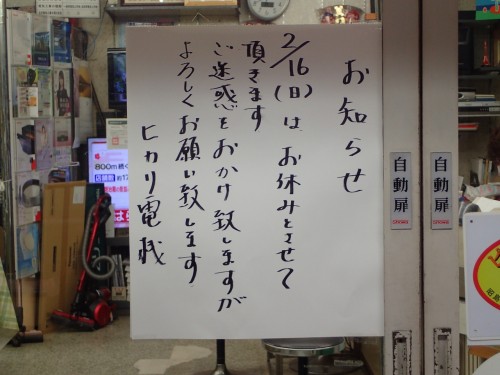 お知らせ
2/16(日)は、お休みとさせて
頂きます
ご迷惑をおかけ致しますが
よろしくお願い致します
ヒカリ電機
自動扉
自動扉
800m続く